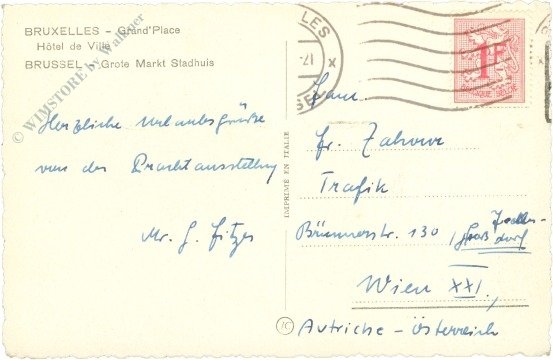 BRUXELLES – Grand'Place
Hôtel de Ville
BRUSSEL – Grote Markt Stadhuis
© WIMSTORE by Wallner
Herzliche Urlaubsgrüße
von der Prachtausstellung
Mr. G.
IMPRIMÉ EN ITALIE
LLES
-21
X
1F
Fam.
Fr.
Trafik
Brünnerstr. 130
Groß Jedlersdorf
Wien XXI.
Autriche – Österreich